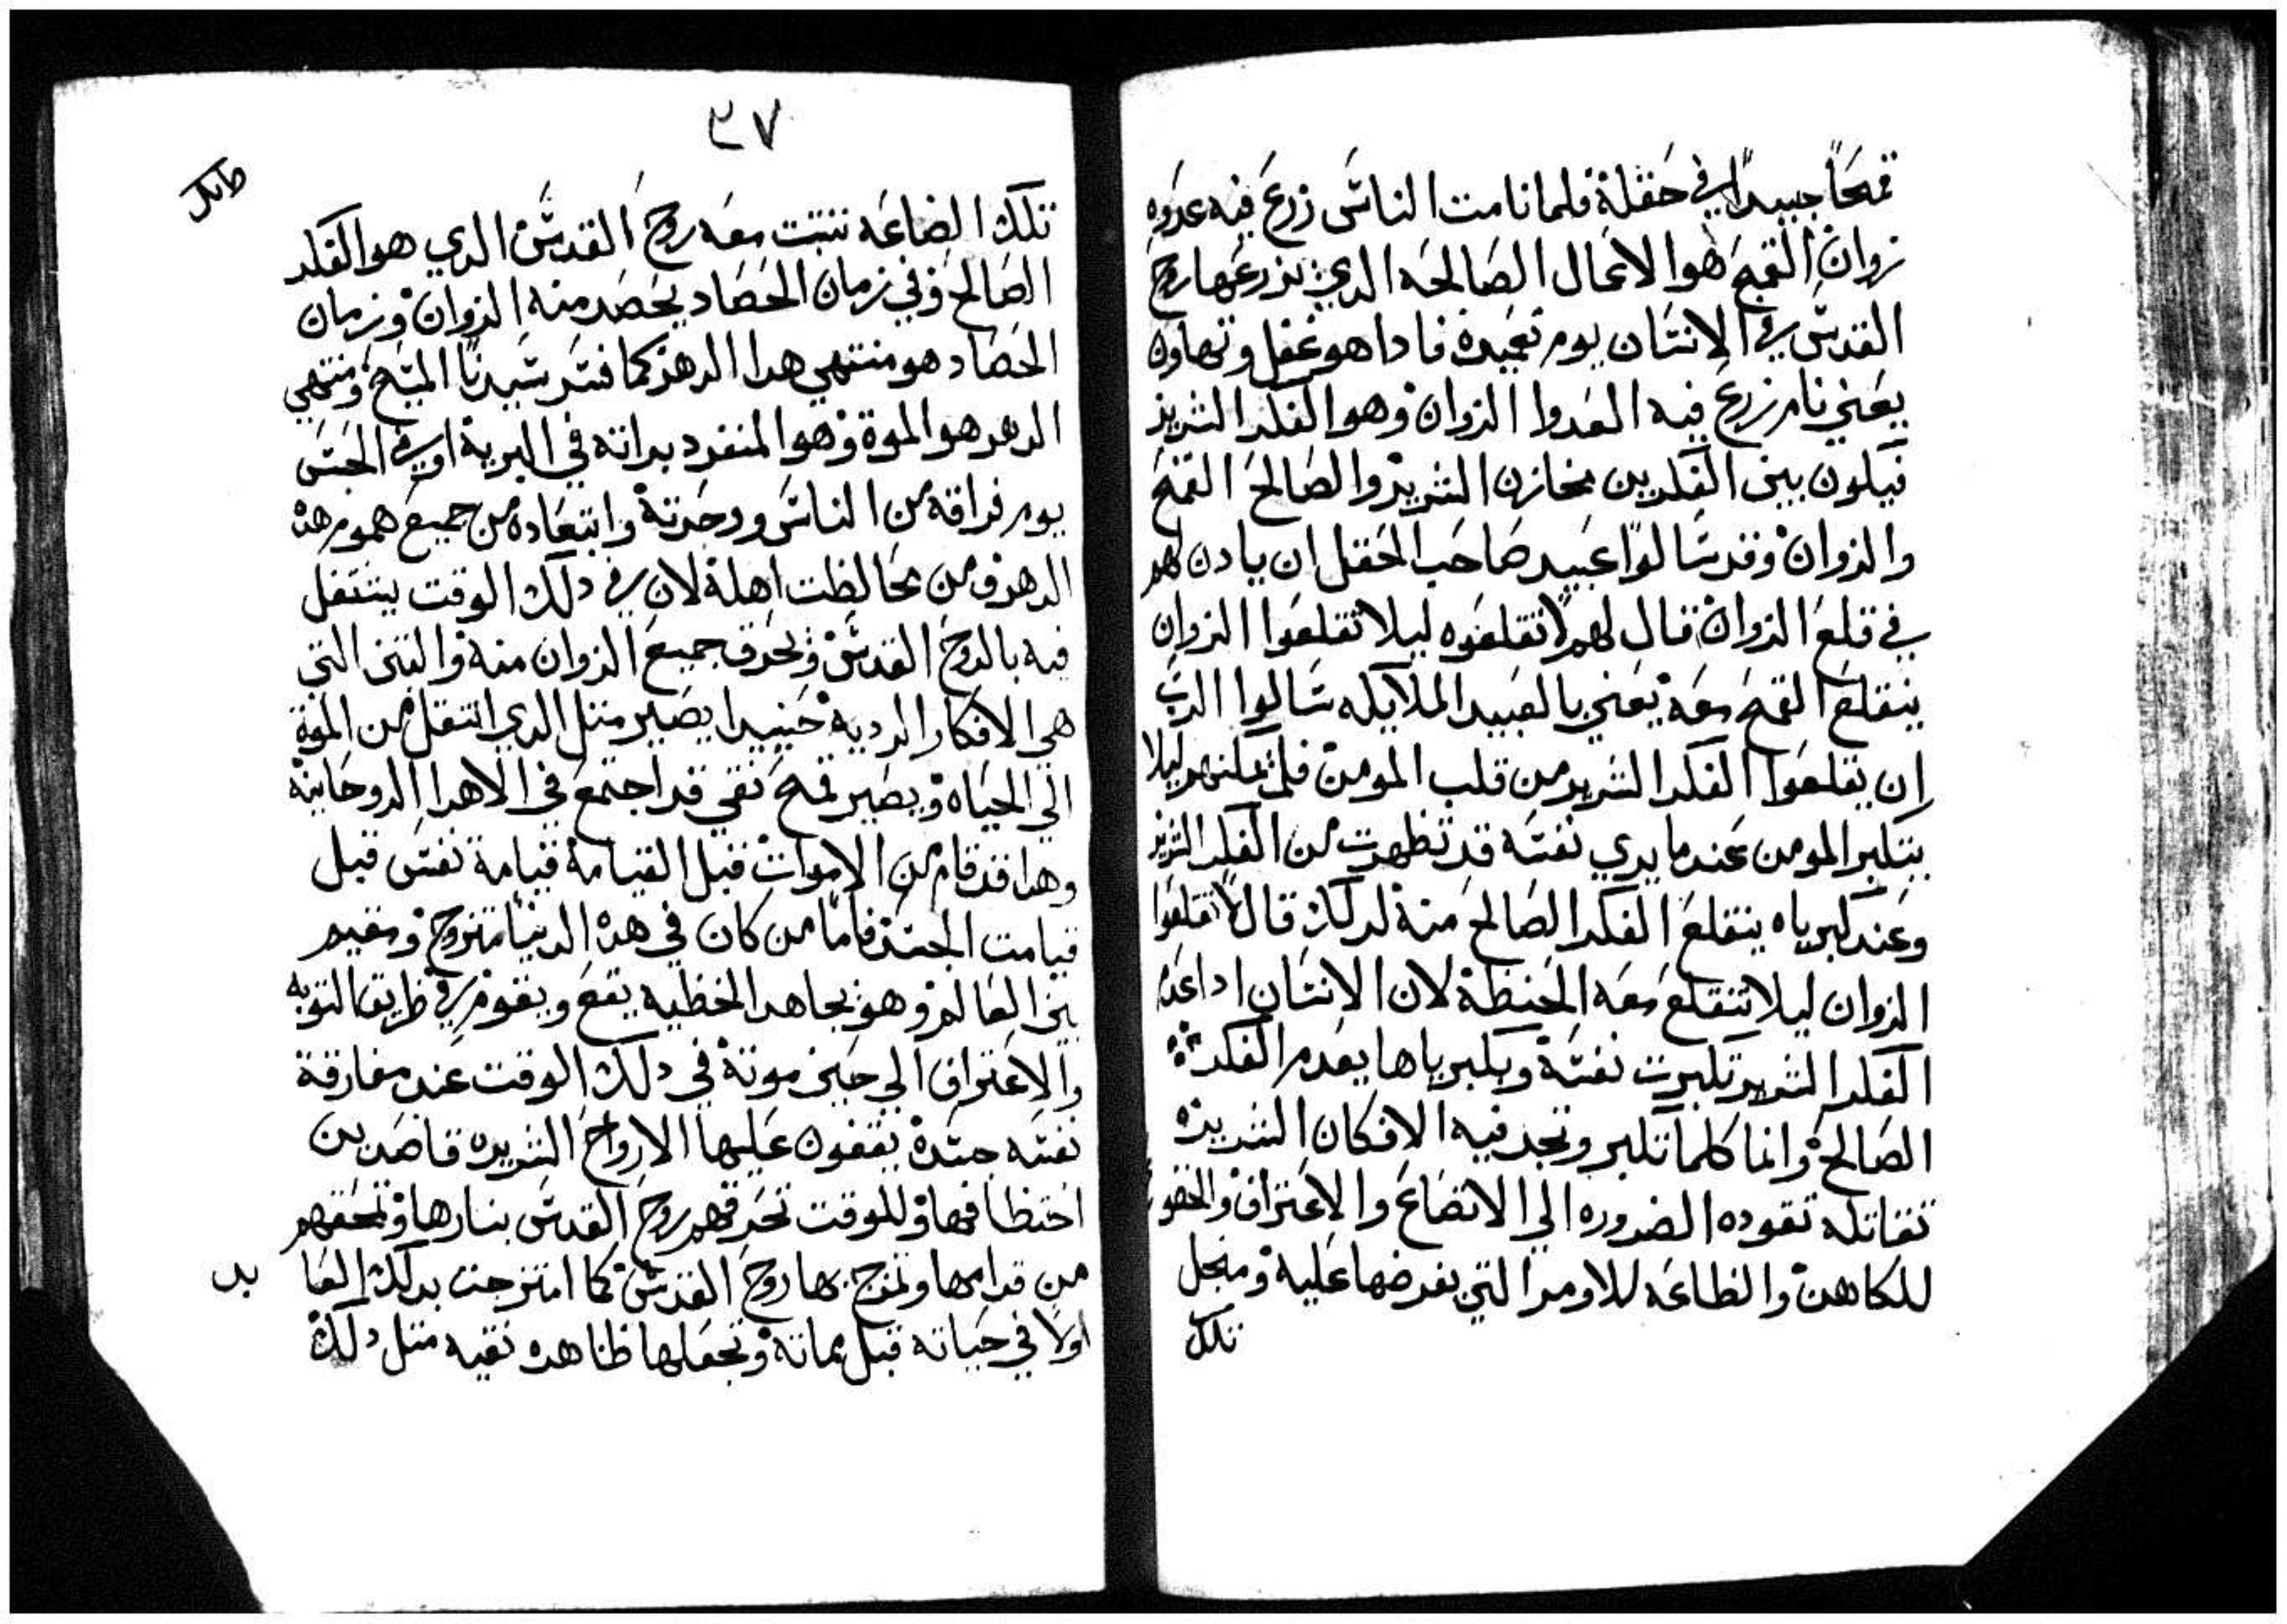 قمحًا جيدًا في حقلة فلما نامت الناس زرع فيه عدوه
زوان القمح هوا الاعمال الصالحه الدي يزرعها روح
القدس في الانسان يوم تعميده فادا هو غفل وتهاون
يعني نام زرع فيه العدوا الزوان وهوا الفكر الشرير
فيكون بين الفكرين مخازن الشرير والصالح القمح
والزوان وقد سالوا عبيد صاحب الحقل ان يادن لهم
في قلع الزوان قال لهم لا تقلعوه ليلا تقلعوا الزوان
ينقلع القمح معه يعني بالعبيد الملايكه سالوا الرب
ان يقلعوا الفكر الشرير من قلب المومن فلم يمكنهم ليلا
يتكبر المومن عندما يري نفسه قد تطهرت من الفكر الشرير
وعند كبرياه ينقلع الفكر الصالح منه لدلك قال لا تقلعوا
الزوان ليلا تنقلع معه الحنطة لان الانسان ادا عدم
الفكر الشرير تكبرت نفسه وبكبرياها يعدم الفكرة
الصالحة وانما كلما تكبر وتجد فيه الافكار الشريره
تقاتله تقوده الضروره الي الاتضاع والاعتراف والخضوع
للكاهن والطاعه للاومر التي يفرضها عليه ومنجل
تلك
٣٧
تلك الضاعه تنبت معه روح القدس الدي هوا الفكر
الصالح وفي زمان الحصاد يحصد منه الزوان وزمان
الحصاد هو منتهي هدا الدهر كما فسر سيدنا المسيح ومنتهي
الدهر هوا الموة وهوا المنفرد بداته في البرية او في الحبس
يوم فراقه من الناس ووحدته وابتعاده من جميع هموم هده
الدهر ومن مخالطت اهلة لان في دلك الوقت يشتعل
فيه بالروح القدس وتحرق جميع الزوان منه والتبن التي
هي الافكار الرديه حينيدا يصير متل الدي انتقل من الموة
الي الحياه ويصير قمح نقي قد اجتمع في الاهرا الروحانية
وهدا فقد قام من الاموات قبل القيامة قيامة نفس قبل
قيامت الجسد فاما من كان في هده الدنيا متزوج ومقيم
بين العالم وهو يجاهد الخطيه يقع ويقوم في طريق التوبه
والاعتراف الي حين موته في دلك الوقت عند مفارقة
نفسه جسده يقفون عليها الارواح الشريره قاصدين
اختطافها وللوقت تحرقهم روح القدس بنارها وتمحقهم
من قدامها وتمزج بها روح القدس كما امتزجت بدلك العا
اولا في حياته قبل مماتة وتجعلها طاهره نقيه متل دلك